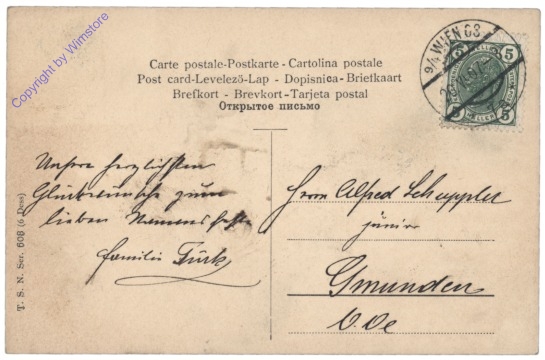 Copyright by Wimstore
Carte postale-Postkarte - Cartolina postale
Post card-Levelező-Lap - Dopisnica-Briefkaart
Brefkort - Brevkort-Tarjeta postal
Открытое письмо
9/4 WIEN 63
5 5
5 5
HELLER
T. S. N. Ser. 608 (6 Dess)
Unsere herzlichsten
Glückwünsche zum
lieben Namensfeste
Familie Türk
Herrn Alfred Schuppler
junior
Gmunden
O. Oe